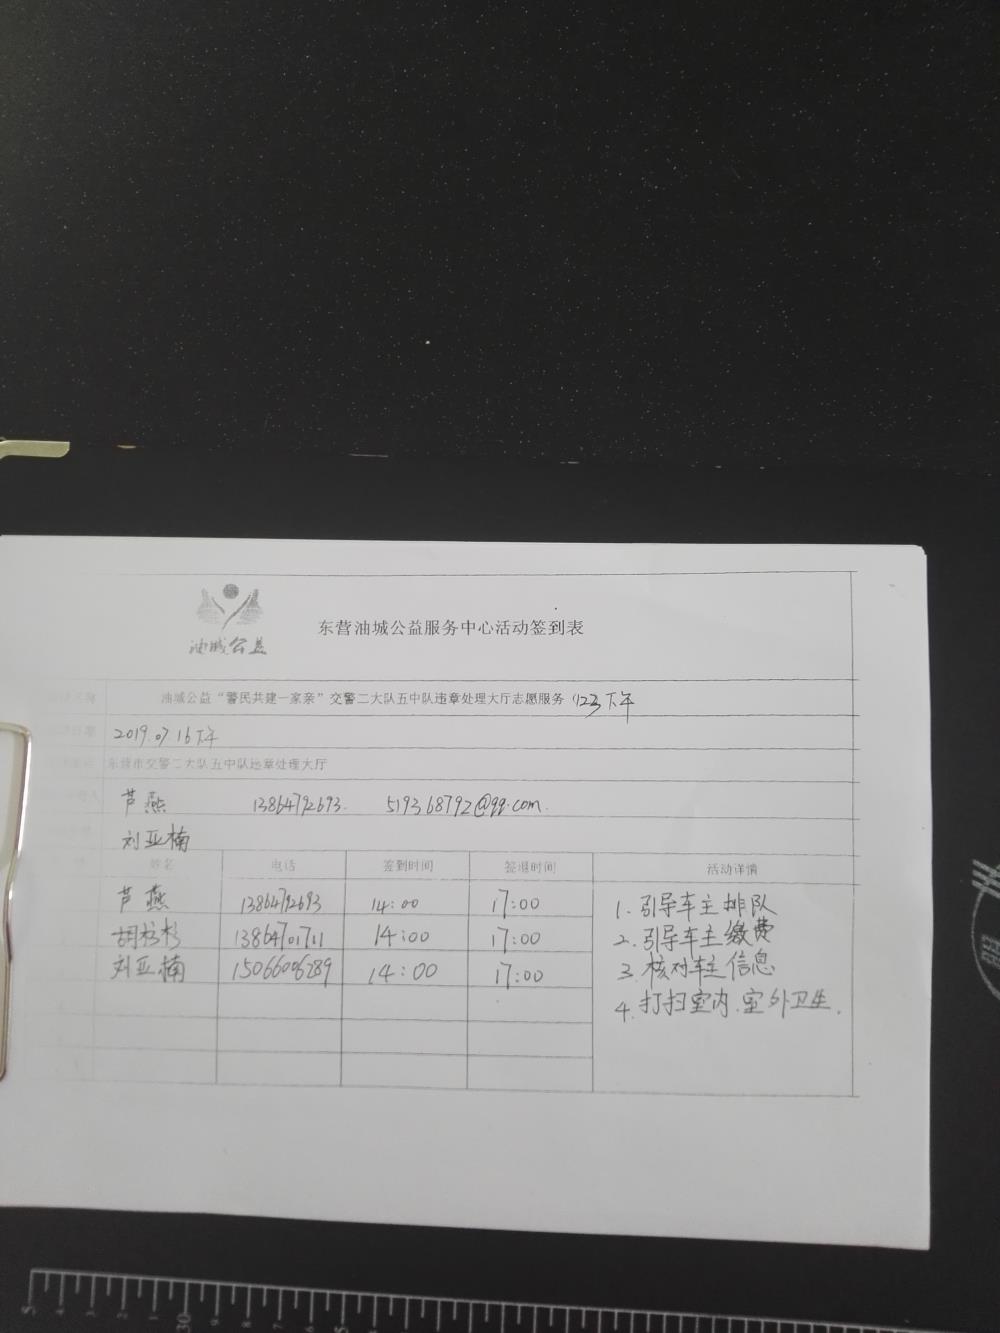 油城公益
东营油城公益服务中心活动签到表
油城公益“警民共建一家亲”交警二大队五中队违章处理大厅志愿服务 123下午
2019.07.16下午
东营市交警二大队五中队违章处理大厅
芦燕 13864792693. 519368792@qq.com.
刘亚楠
姓名 电话 签到时间 签退时间 活动详情
芦燕 13864792693 14:00 17:00 1.引导车主排队
胡杉杉 13864701711 14:00 17:00 2.引导车主缴费
刘亚楠 15066006289 14:00 17:00 3.核对车主信息
4.打扫室内、室外卫生.